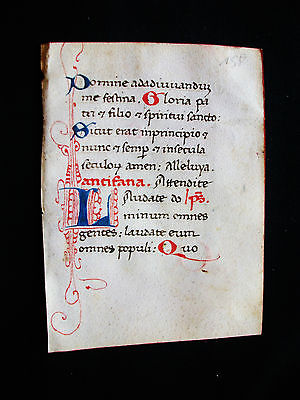 158
Domine adadiuuandum
me festina. Gloria pa
tri et filio et spiritui sancto:
Sicut erat inprincipio et
nunc et semp et insecula
seculorum amen: Alleluya.
antifana. Attendite
Laudate do ps.
minum omnes
gentes: laudate eum
omnes populi: Quo